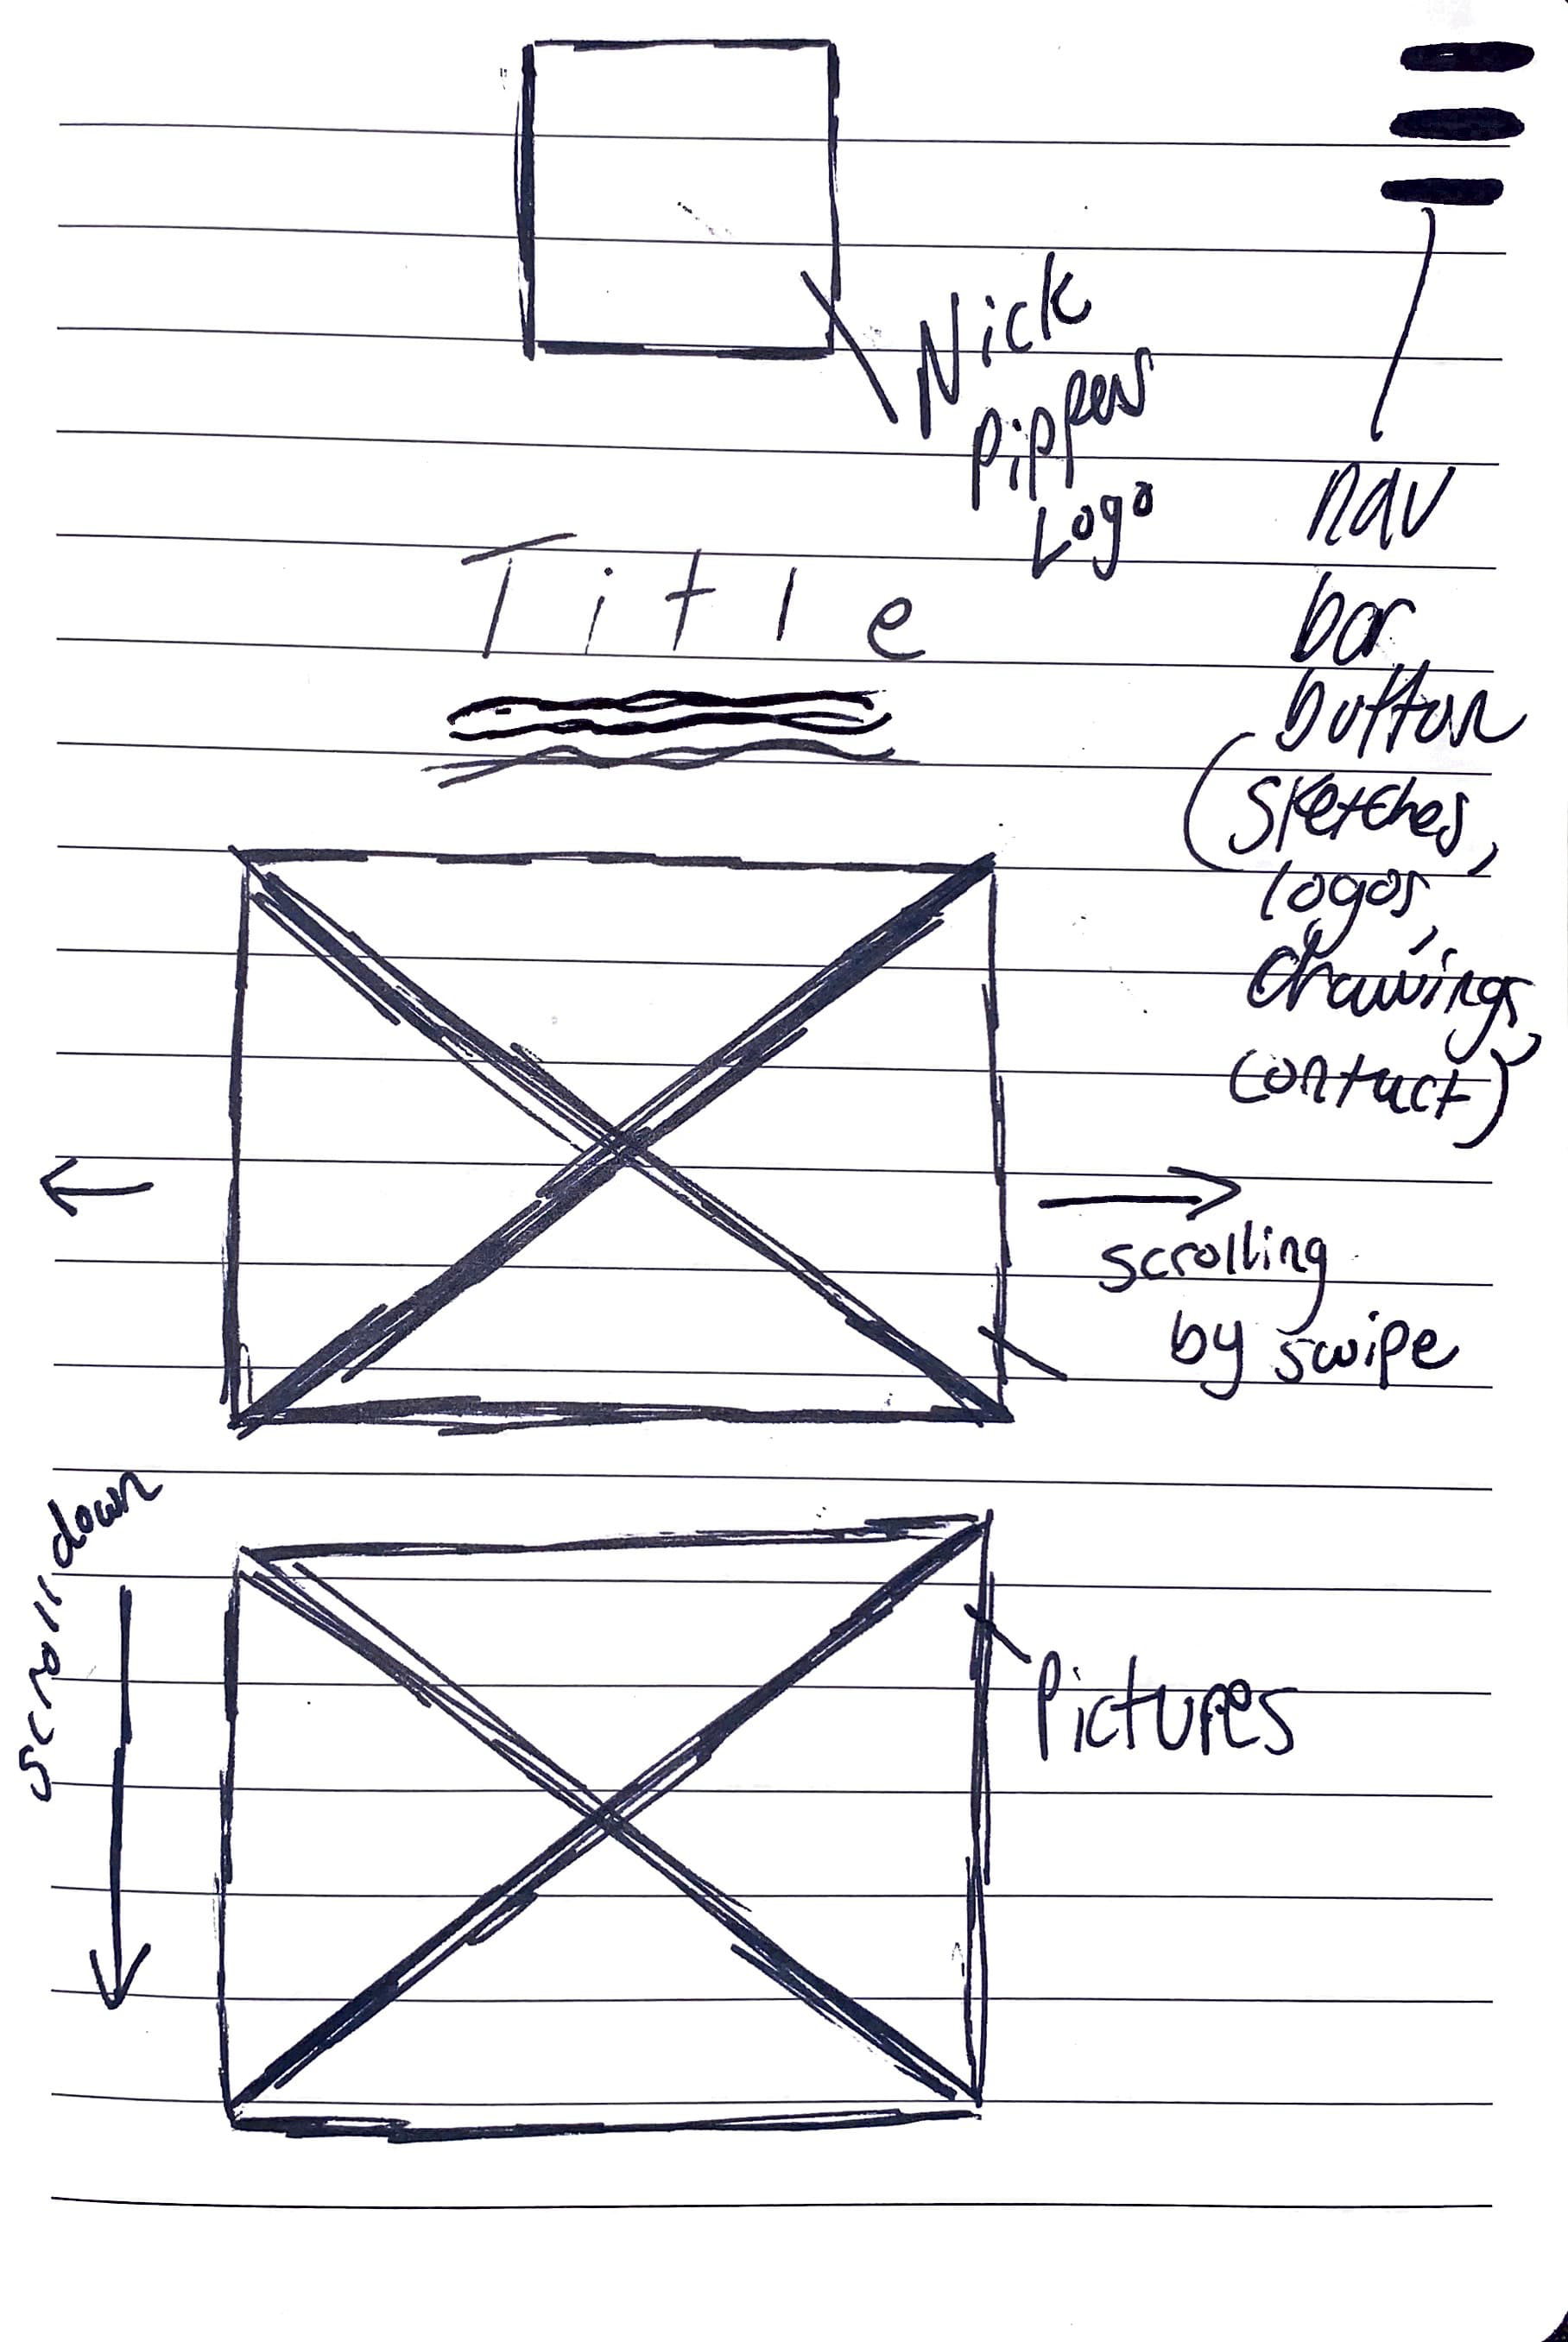 Nick
Pippen
Logo
nav
bar
button
(sketches,
logos,
drawings,
contact)
Title
scrolling
by swipe
scroll down
Pictures